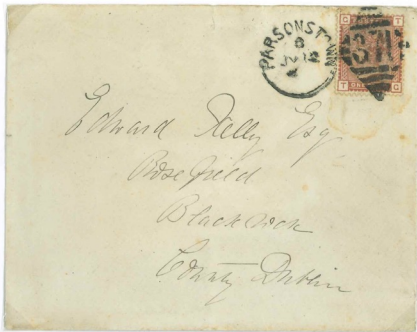 PARSONSTOWN
8
JU 12
371
G T
ONE
T G
Edward Kelly Esq
Rosefield
Blackrock
County Dublin